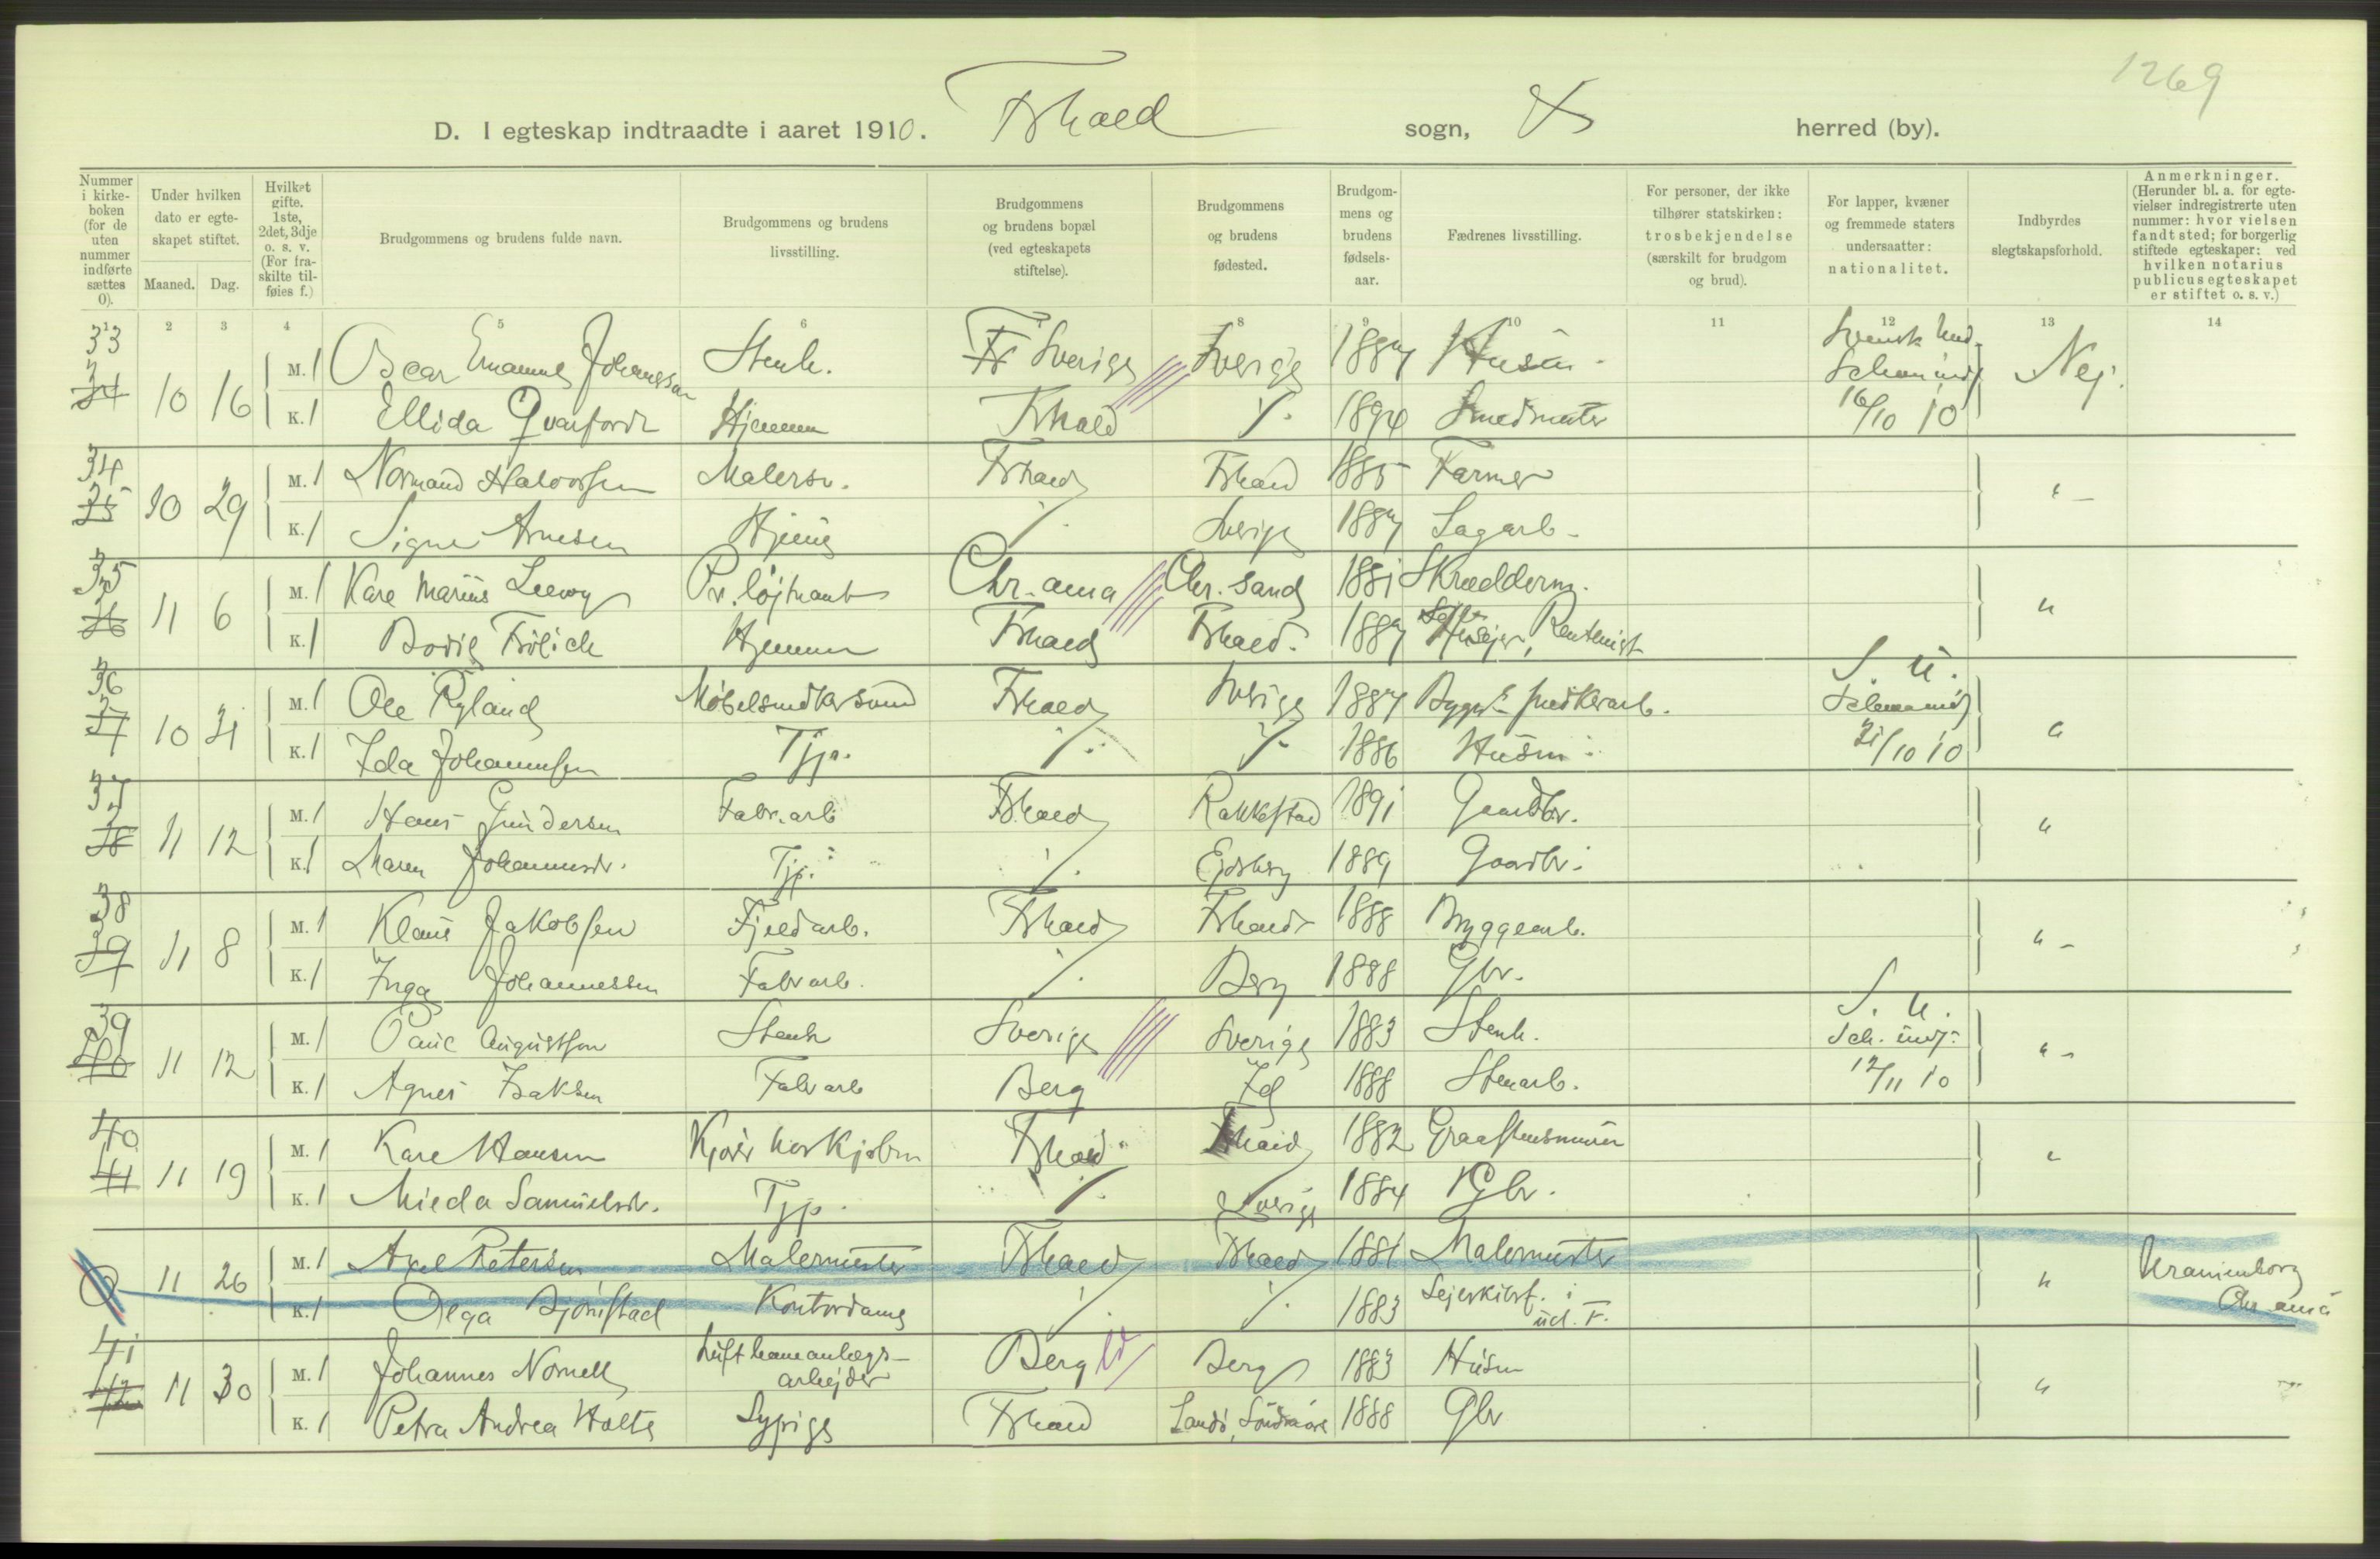 1269
D. I egteskap indtraadte i aaret 1910. Frhald sogn, herred (by).
Nummer i kirkeboken (for de uten nummer indførte sættes 0).
Under hvilken dato er egteskapet stiftet.
Maaned. Dag.
Hvilket gifte. 1ste, 2det, 3dje o. s. v. (For fraskilte tilføies f.)
Brudgommens og brudens fulde navn.
Brudgommens og brudens livsstilling.
Brudgommens og brudens bopæl (ved egteskapets stiftelse).
Brudgommens og brudens fødested.
Brudgommens og brudens fødselsaar.
Fædrenes livsstilling.
For personer, der ikke tilhører statskirken: trosbekjendelse (særskilt for brudgom og brud).
For lapper, kvæner og fremmede staters undersaatter: nationalitet.
Indbyrdes slegtskapsforhold.
Anmerkninger. (Herunder bl. a. for egtevielser indregistrerte uten nummer: hvor vielsen fandt sted; for borgerlig stiftede egteskaper: ved hvilken notarius publicus egteskapet er stiftet o. s. v.)
1 2 3 4 5 6 7 8 9 10 11 12 13 14
33 34 10 16 M. 1 Oscar Emanuel Johansson Stenh. Fr Sverige Sverige 1887 Husm. Svensk Und. Nej.
K. 1 Ellida Qvarfordt Hjemme Frhald ⁒ 1894 Smedmester 16/10 10
34 35 10 29 M. 1 Normand Halvorsen Malersv. Frhald Frhald 1885 Farmer
K. 1 Signe Arnesen Hjeme ⁒ Sverige 1887 Sagarb.
35 36 11 6 M. 1 Karl Marius Pr. løjtnant Chr.ania Chr.sand 1881 Skrædderm. "
K. 1 Bodil Frölich Hjemme Frhald Frhald. 1887 Rentenist
36 37 10 31 M. 1 Ole Ryland Møbelsnedkersvend Frhald Sverige 1887 Snedkerarb. S. U.
K. 1 Ida Johannesen Tjp. ⁒ ⁒ 1886 Husm. 31/10 10 "
37 38 11 12 M. 1 Hans Gundersen Fabr.arb Frhald Rakkestad 1891 Gaardbr. "
K. 1 Maren Johannesdr. Tjp. ⁒ Ejdsberg 1889 Gaardbr.
38 39 11 8 M. 1 Klaus Jakobsen Fjeldarb. Frhald Frhald 1888 Bryggearb. " -
K. 1 Inga Johannessen Fabrarb. ⁒ Berg 1888 Gbr.
39 40 11 12 M. 1 Paul Augustson Stenh Sverige Sverige 1883 Stenh. S. U. " -
K. 1 Agnes Isaksen Fabrarb Berg Id 1888 Stenarb. 12/11 10
40 41 11 19 M. 1 Karl Hansen Frhald Frhald 1882 Graastensmurer "
K. 1 Samuelsdr. Tjp. ⁒ Sverige 1884 Gbr.
0 11 26 M. 1 Axel Petersen Malermester Frhald Frhald 1881 Malermester " Uranienborg
K. 1 Olga Bjørnstad Kontordame ⁒ ⁒ 1883 Chr.ania
41 42 11 30 M. 1 Johannes Nornell arbejder Berg Berg 1883 Husm "
K. 1 Petra Andrea Holte Sypige Frhald Søndmøre 1888 Gbr